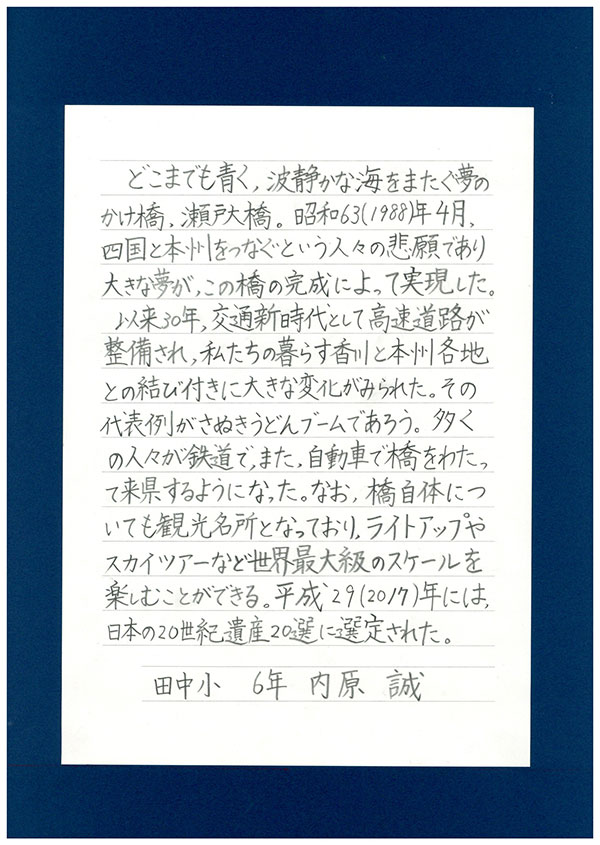 どこまでも青く,波静かな海をまたぐ夢の
かけ橋,瀬戸大橋。昭和63(1988)年4月,
四国と本州をつなぐという人々の悲願であり
大きな夢が,この橋の完成によって実現した。
以来30年,交通新時代として高速道路が
整備され,私たちの暮らす香川と本州各地
との結び付きに大きな変化がみられた。その
代表例がさぬきうどんブームであろう。多く
の人々が鉄道で,また,自動車で橋をわたっ
て来県するようになった。なお,橋自体につ
いても観光名所となっており,ライトアップや
スカイツアーなど世界最大級のスケールを
楽しむことができる。平成29(2017)年には,
日本の20世紀遺産20選に選定された。
田中小 6年 内原 誠